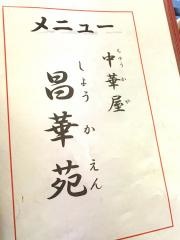 メニュー
中華屋
ちゅうかや
昌華苑
しょうかえん